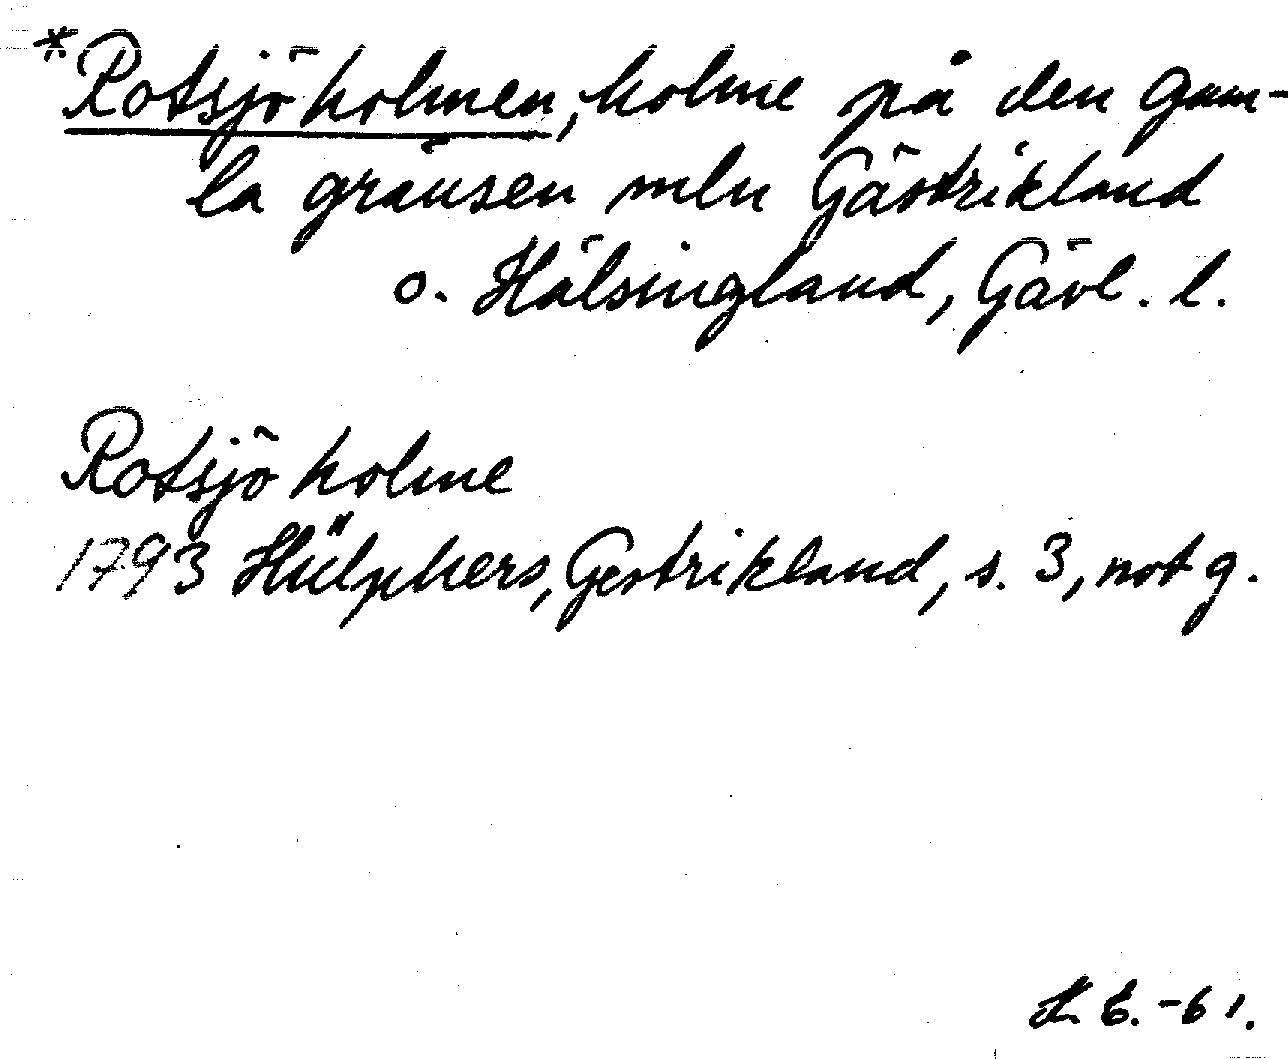 *Rotsjöholmen, holme på den gam-
la gränsen mln Gästrikland
o. Hälsingland, Gävl. l.
Rotsjö holme
1793 Hülphers, Gestrikland, s. 3, not g.
E.-61.